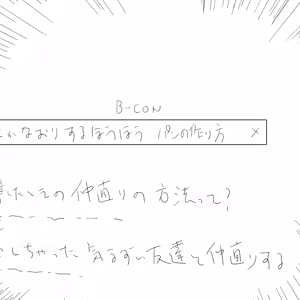 B-CON
なおりするほうほう パンの作り方 ×
たしその仲直りの方法って?
しちゃった気まずい友達と仲直りする